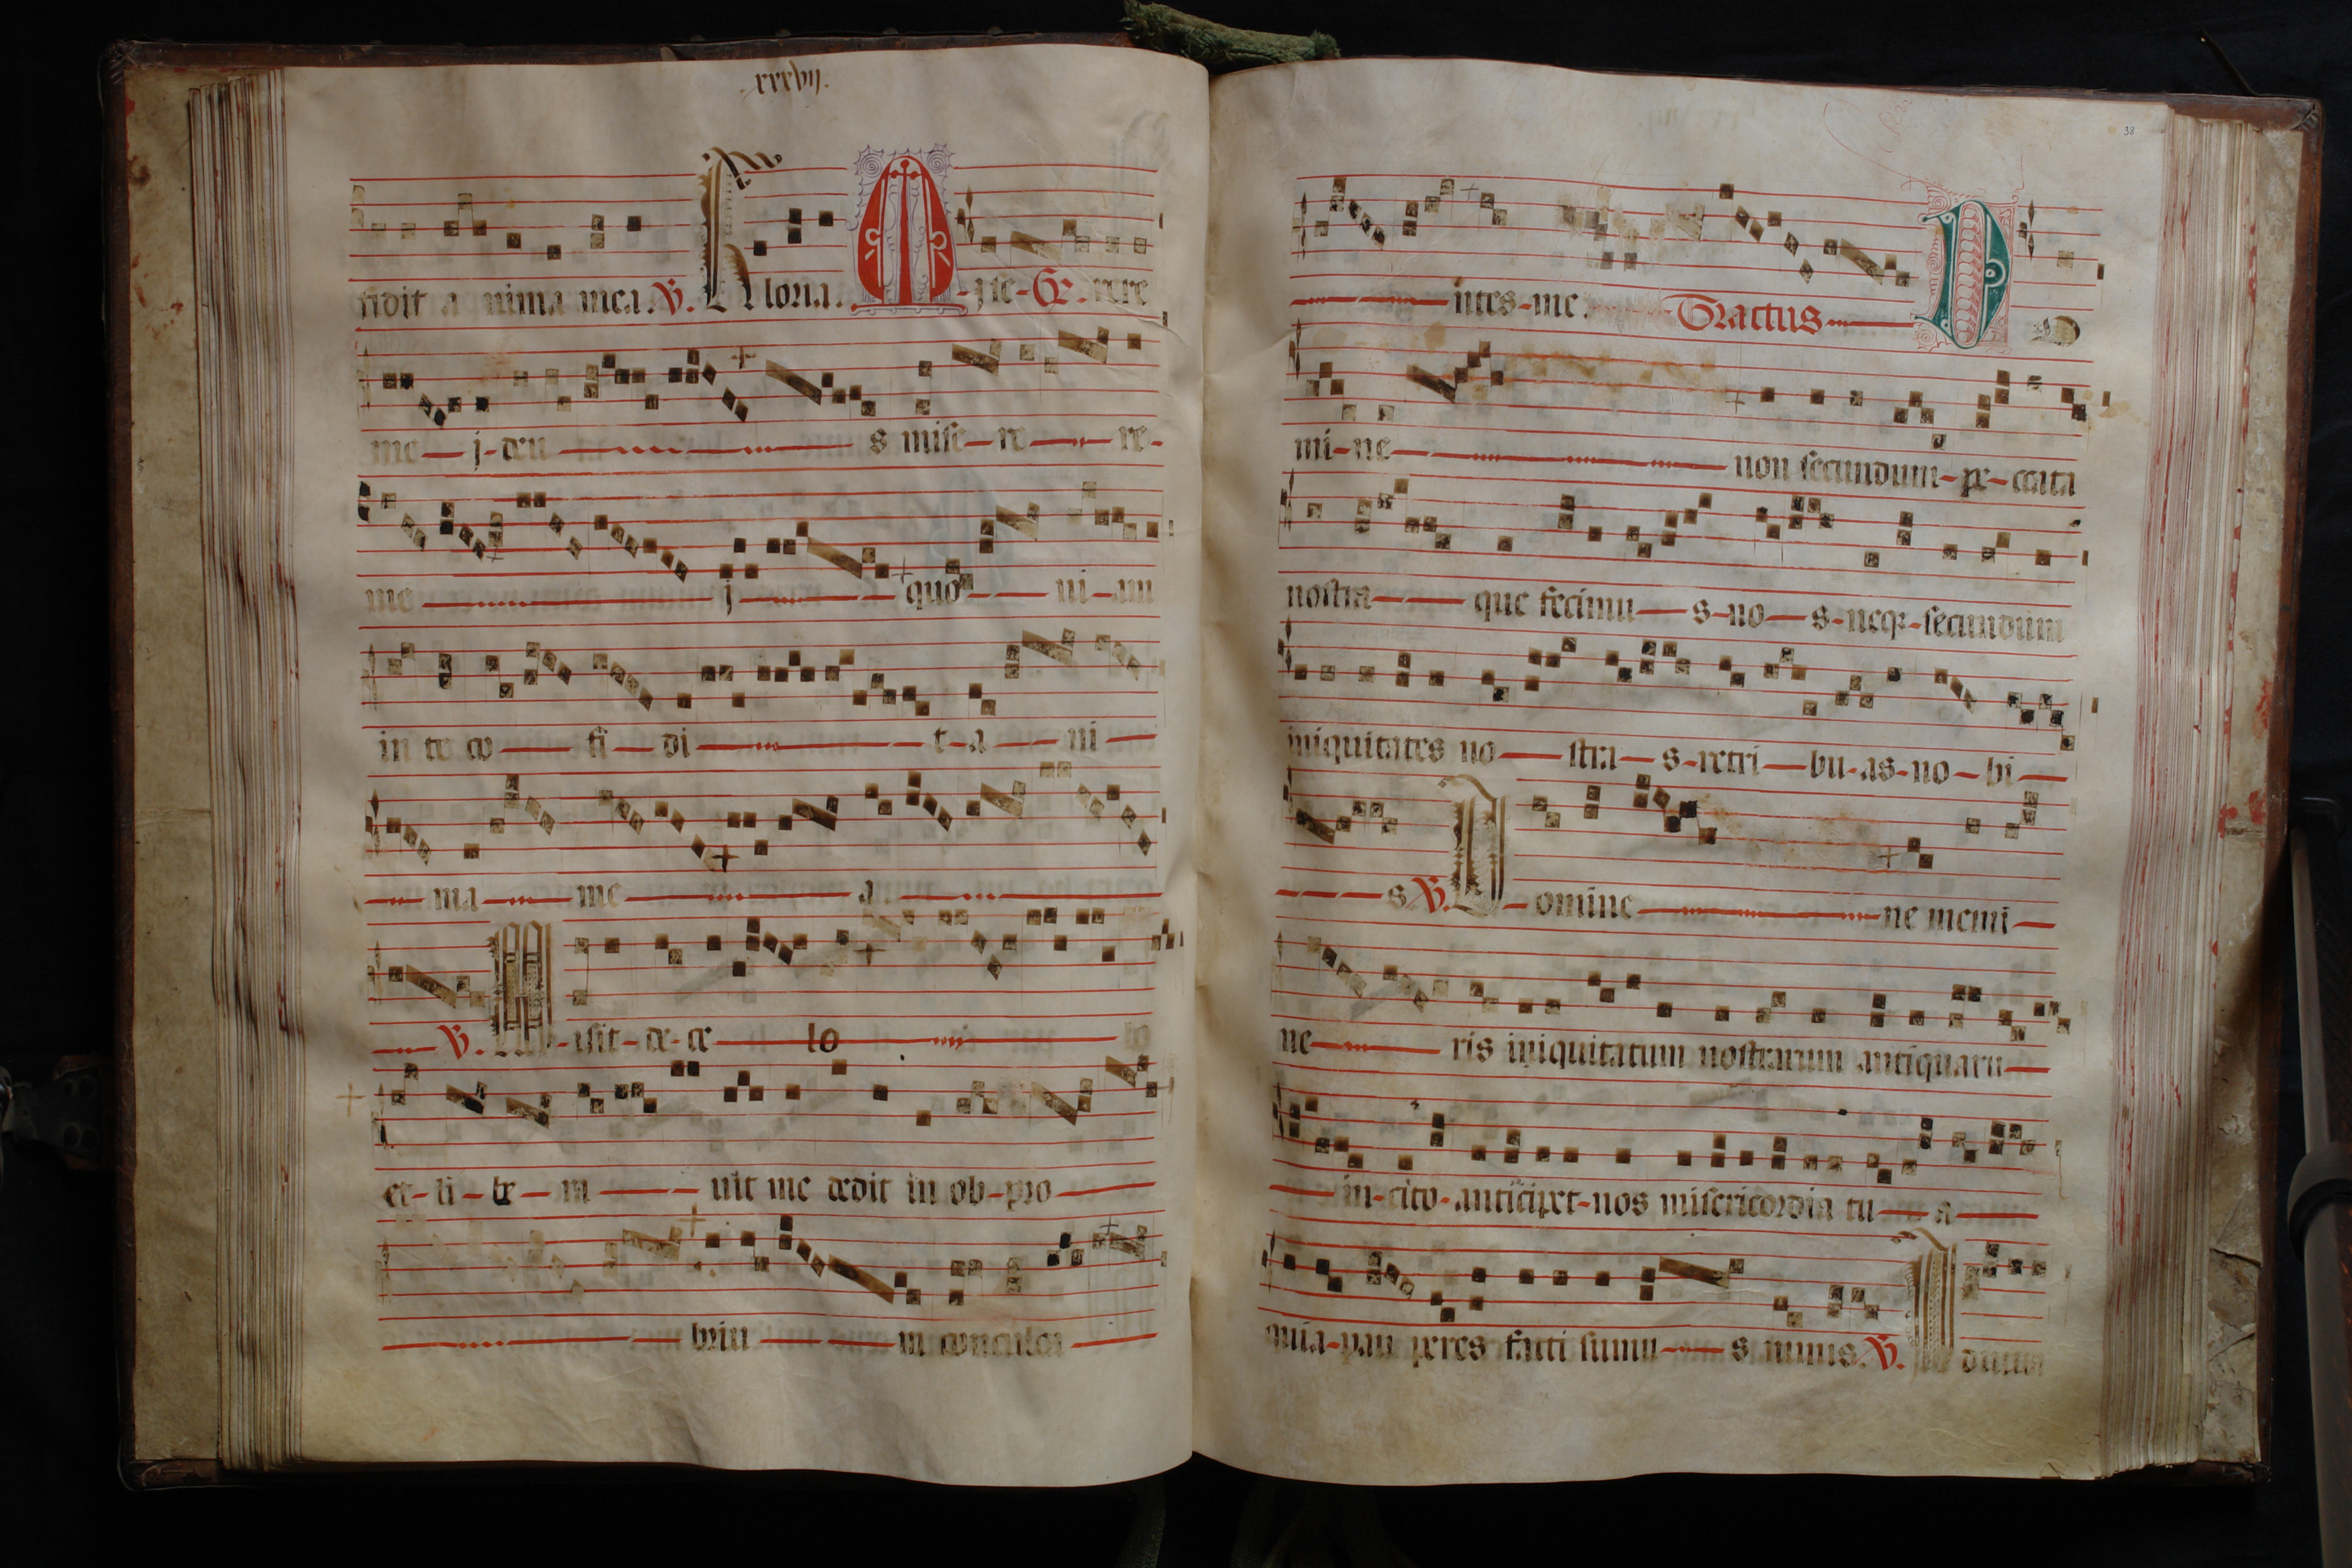 .xxxvij.
fidit a nima mea. V. Gloria. M-ise-Gr.-rere
me-j-deu-s mise-re-re-
me-j-quo-ni-am
in te co-fi-di-t-a-ni-
-ma-me-a-
V. M-isit-de-ce-lo
et-li-be-ra-uit me dedit in ob-pro-
-briu-m conculca-
38
-ntes-me. Tractus D o
mi-ne-non secundum-pe-ccata
nostra-que fecimu-s-no-s-neqz-secundum
iniquitates no-stra-s-retri-bu-as-no-bi-
-s V. D-omine-ne memi-
ne-ris iniquitatum nostrarum antiquaru-
-m-cito-anticipet-nos misericordia tu-a-
quia-pau peres facti sumu-s nimis. V. A diuua